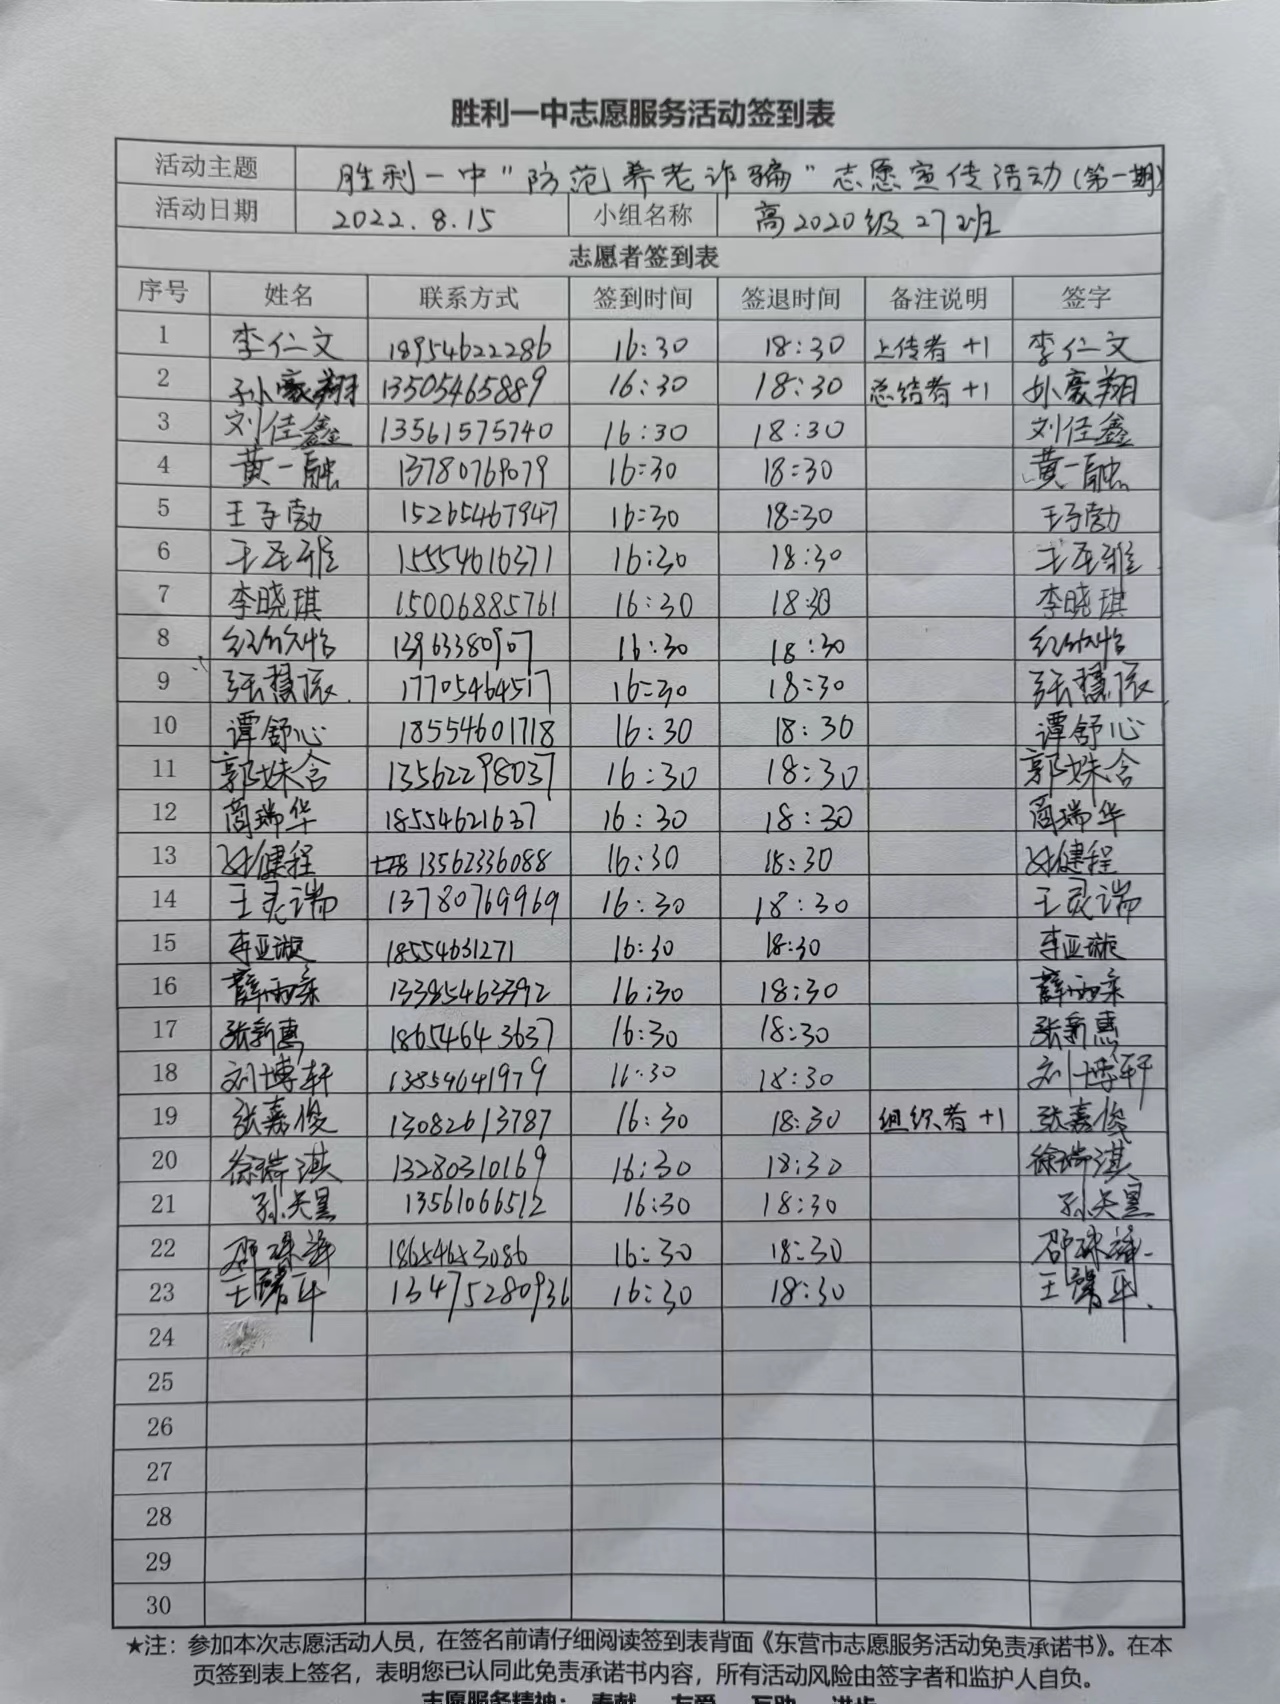 胜利一中志愿服务活动签到表
活动主题 胜利一中"防范养老诈骗"志愿宣传活动(第一期)
活动日期 2022.8.15 小组名称 高2020级27班
志愿者签到表
序号 姓名 联系方式 签到时间 签退时间 备注说明 签字
1 李仁文 18954622286 16:30 18:30 上传者 +1 李仁文
2 孙豪翔 13505465889 16:30 18:30 总结者 +1 孙豪翔
3 刘佳鑫 13561575740 16:30 18:30 刘佳鑫
4 黄一融 13780769079 16:30 18:30 黄一融
5 王子勃 15265467947 16:30 18:30 王子勃
6 15554616371 16:30 18:30
7 李晓琪 15006885761 16:30 18:30 李晓琪
8 13963380907 16:30 18:30
9 张慧依 17705464517 16:30 18:30 张慧依
10 谭舒心 18554601718 16:30 18:30 谭舒心
11 郭姝含 13562298037 16:30 18:30 郭姝含
12 商瑞华 18554621637 16:30 18:30 商瑞华
13 13562336088 16:30 18:30
14 王灵端 13780769969 16:30 18:30 王灵端
15 李亚璇 18554631271 16:30 18:30 李亚璇
16 薛雨桑 13385463392 16:30 18:30 薛雨桑
17 张新惠 18654643637 16:30 18:30 张新惠
18 刘博轩 13854641979 16:30 18:30 刘博轩
19 张嘉俊 13082613787 16:30 18:30 组织者 +1 张嘉俊
20 徐瑞淇 13280310169 16:30 18:30 徐瑞淇
21 孙天昱 13561066512 16:30 18:30 孙天昱
22 16:30 18:30
23 13475280936 16:30 18:30
24
25
26
27
28
29
30
★注：参加本次志愿活动人员，在签名前请仔细阅读签到表背面《东营市志愿服务活动免责承诺书》。在本
页签到表上签名，表明您已认同此免责承诺书内容，所有活动风险由签字者和监护人自负。
志愿服务精神：奉献 友爱 互助 进步